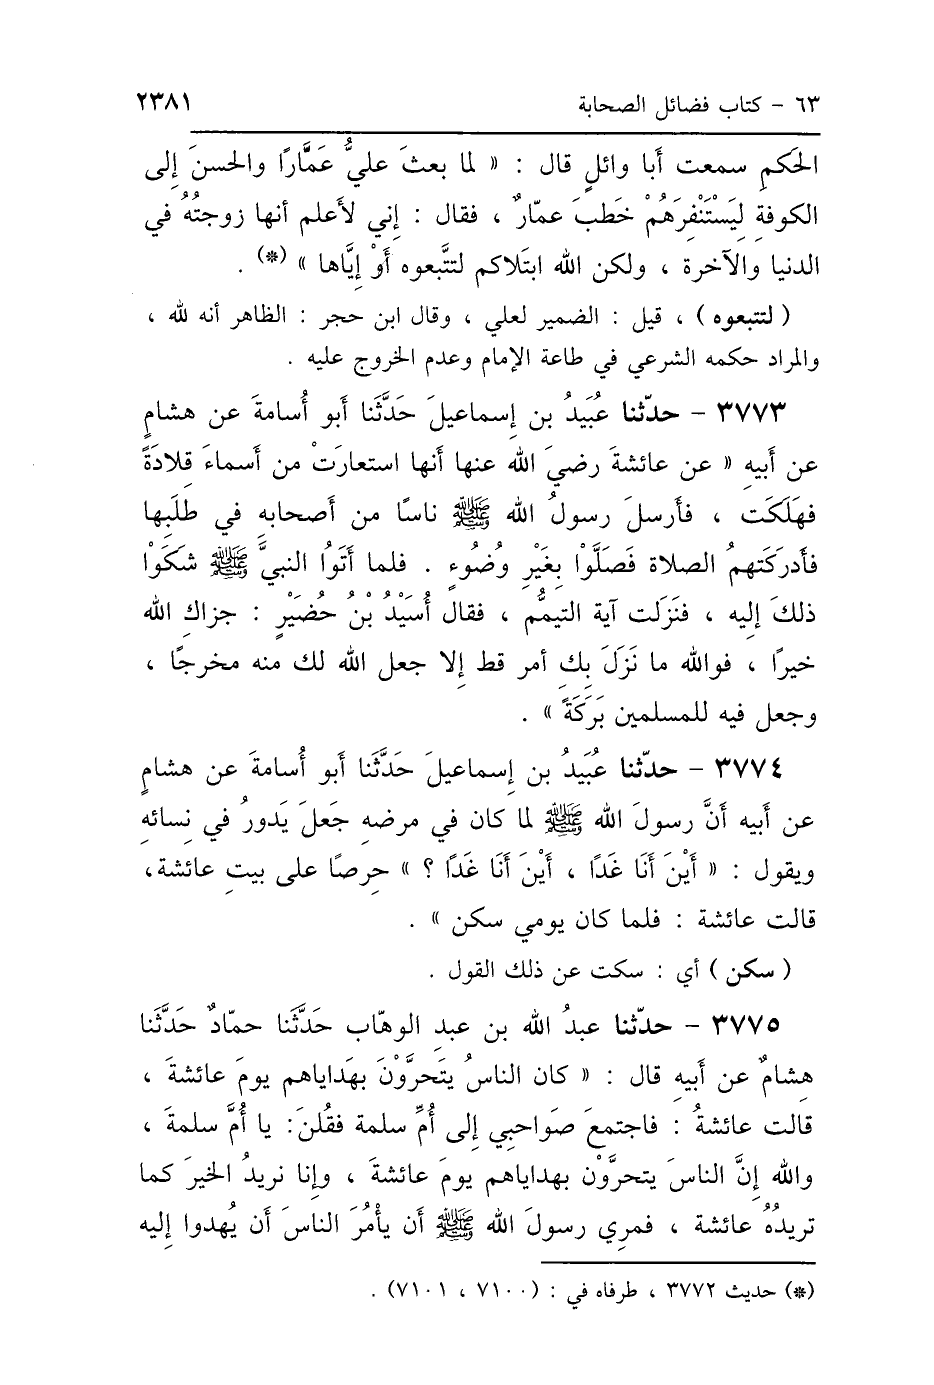 ٦٣ - كتاب فضائل الصحابة ٢٣٨١
الحَكَمِ سمعت أبا وائلٍ قال : « لما بعثَ عليُّ عَمَّارًا والحسنَ إلى
الكوفةِ لِيَسْتَنْفِرَهُمْ خَطبَ عمّارٌ ، فقال : إني لأَعلم أنها زوجتُهُ في
الدنيا والآخرة ، ولكن الله ابتَلاكم لتتَّبعوه أَوْ إيَّاها » (*) .
( لتتبعوه ) ، قيل : الضمير لعلي ، وقال ابن حجر : الظاهر أنه لله ،
والمراد حكمه الشرعي في طاعة الإمام وعدم الخروج عليه .
٣٧٧٣ - حدّثنا عُبَيدُ بن إسماعيلَ حَدَّثَنا أبو أُسامةَ عن هشامٍ
عن أبيهِ « عن عائشةَ رضيَ الله عنها أنها استعارَتْ من أسماءَ قِلادَةً
فهَلَكَت ، فأرسلَ رسولُ الله ﷺ ناسًا من أصحابهِ في طلَبِها
فأدركَتهمُ الصلاة فَصَلَّوْا بِغَيْرِ وُضُوءٍ . فلما أَتَوُا النبيَّ ﷺ شكَوْا
ذلكَ إليه ، فنَزَلَت آية التيمُّم ، فقال أُسَيْدُ بْنُ حُضَيْرٍ : جزاك الله
خيرًا ، فوالله ما نَزَلَ بِكِ أمر قط إلا جعل الله لك منه مخرجًا ،
وجعل فيه للمسلمين بَرَكَةً » .
٣٧٧٤ - حدّثنا عُبَيدُ بن إسماعيلَ حَدَّثَنا أبو أُسامةَ عن هشامٍ
عن أبيه أنَّ رسولَ الله ﷺ لما كان في مرضه جَعلَ يَدورُ في نِسائهِ
ويقول : « أَيْنَ أَنَا غَدًا ، أَيْنَ أَنَا غَدًا ؟ » حِرصًا على بيتِ عائشة،
قالت عائشة : فلما كان يومي سكن » .
( سكن ) أي : سكت عن ذلك القول .
٣٧٧٥ - حدّثنا عبدُ الله بن عبدِ الوهّاب حَدَّثَنا حمّادٌ حَدَّثَنا
هشامٌ عن أبيهِ قال : « كان الناسُ يَتحرَّوْنَ بهَداياهم يومَ عائشةَ ،
قالت عائشةُ : فاجتمعَ صَواحبي إلى أُمِّ سلمة فقُلنَ: يا أُمَّ سلمةَ ،
والله إنَّ الناسَ يتحرَّوْن بهداياهم يومَ عائشةَ ، وإنا نريدُ الخيرَ كما
تريدُهُ عائشة ، فمري رسولَ الله ﷺ أن يأْمُرَ الناسَ أن يُهدوا إليه
(*) حديث ٣٧٧٢ ، طرفاه في : (٧١٠٠ ، ٧١٠١) .